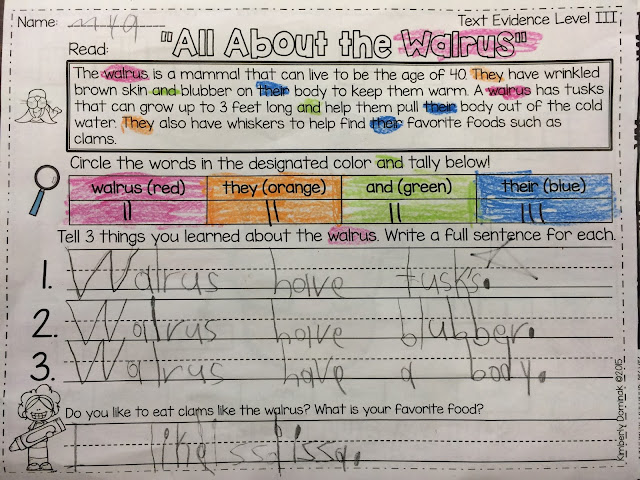 Name: mya
Text Evidence Level III
Read:
"All About the Walrus"
The walrus is a mammal that can live to be the age of 40. They have wrinkled
brown skin and blubber on their body to keep them warm. A walrus has tusks
that can grow up to 3 feet long and help them pull their body out of the cold
water. They also have whiskers to help find their favorite foods such as
clams.
Circle the words in the designated color and tally below!
walrus (red) they (orange) and (green) their (blue)
Tell 3 things you learned about the walrus. Write a full sentence for each.
1. Walrus have tusks.
2. Walrus have blubber.
3. Walrus have a body.
Do you like to eat clams like the walrus? What is your favorite food?
I like
Kimberly Dominak ©2015